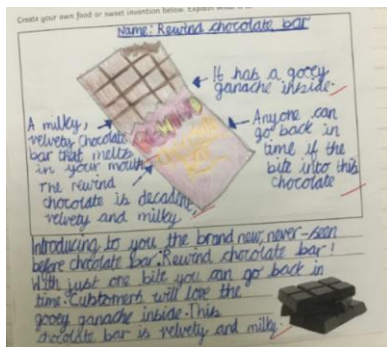 Create your own food or sweet invention below. Explain what
Name: Rewind chocolate bar
It has a gooey
ganache inside.
Anyone can
go back in
time if the
bite into this
chocolate
A milky,
velvety chocolate
bar that melts
in your mouth
The rewind
chocolate is decadent,
velvety and milky.
REWIND
Introducing to you the brand new, never-seen
before chocolate bar: Rewind chocolate bar!
With just one bite you can go back in
time. Customers will love the
gooey ganache inside. This
chocolate bar is velvety and milky.